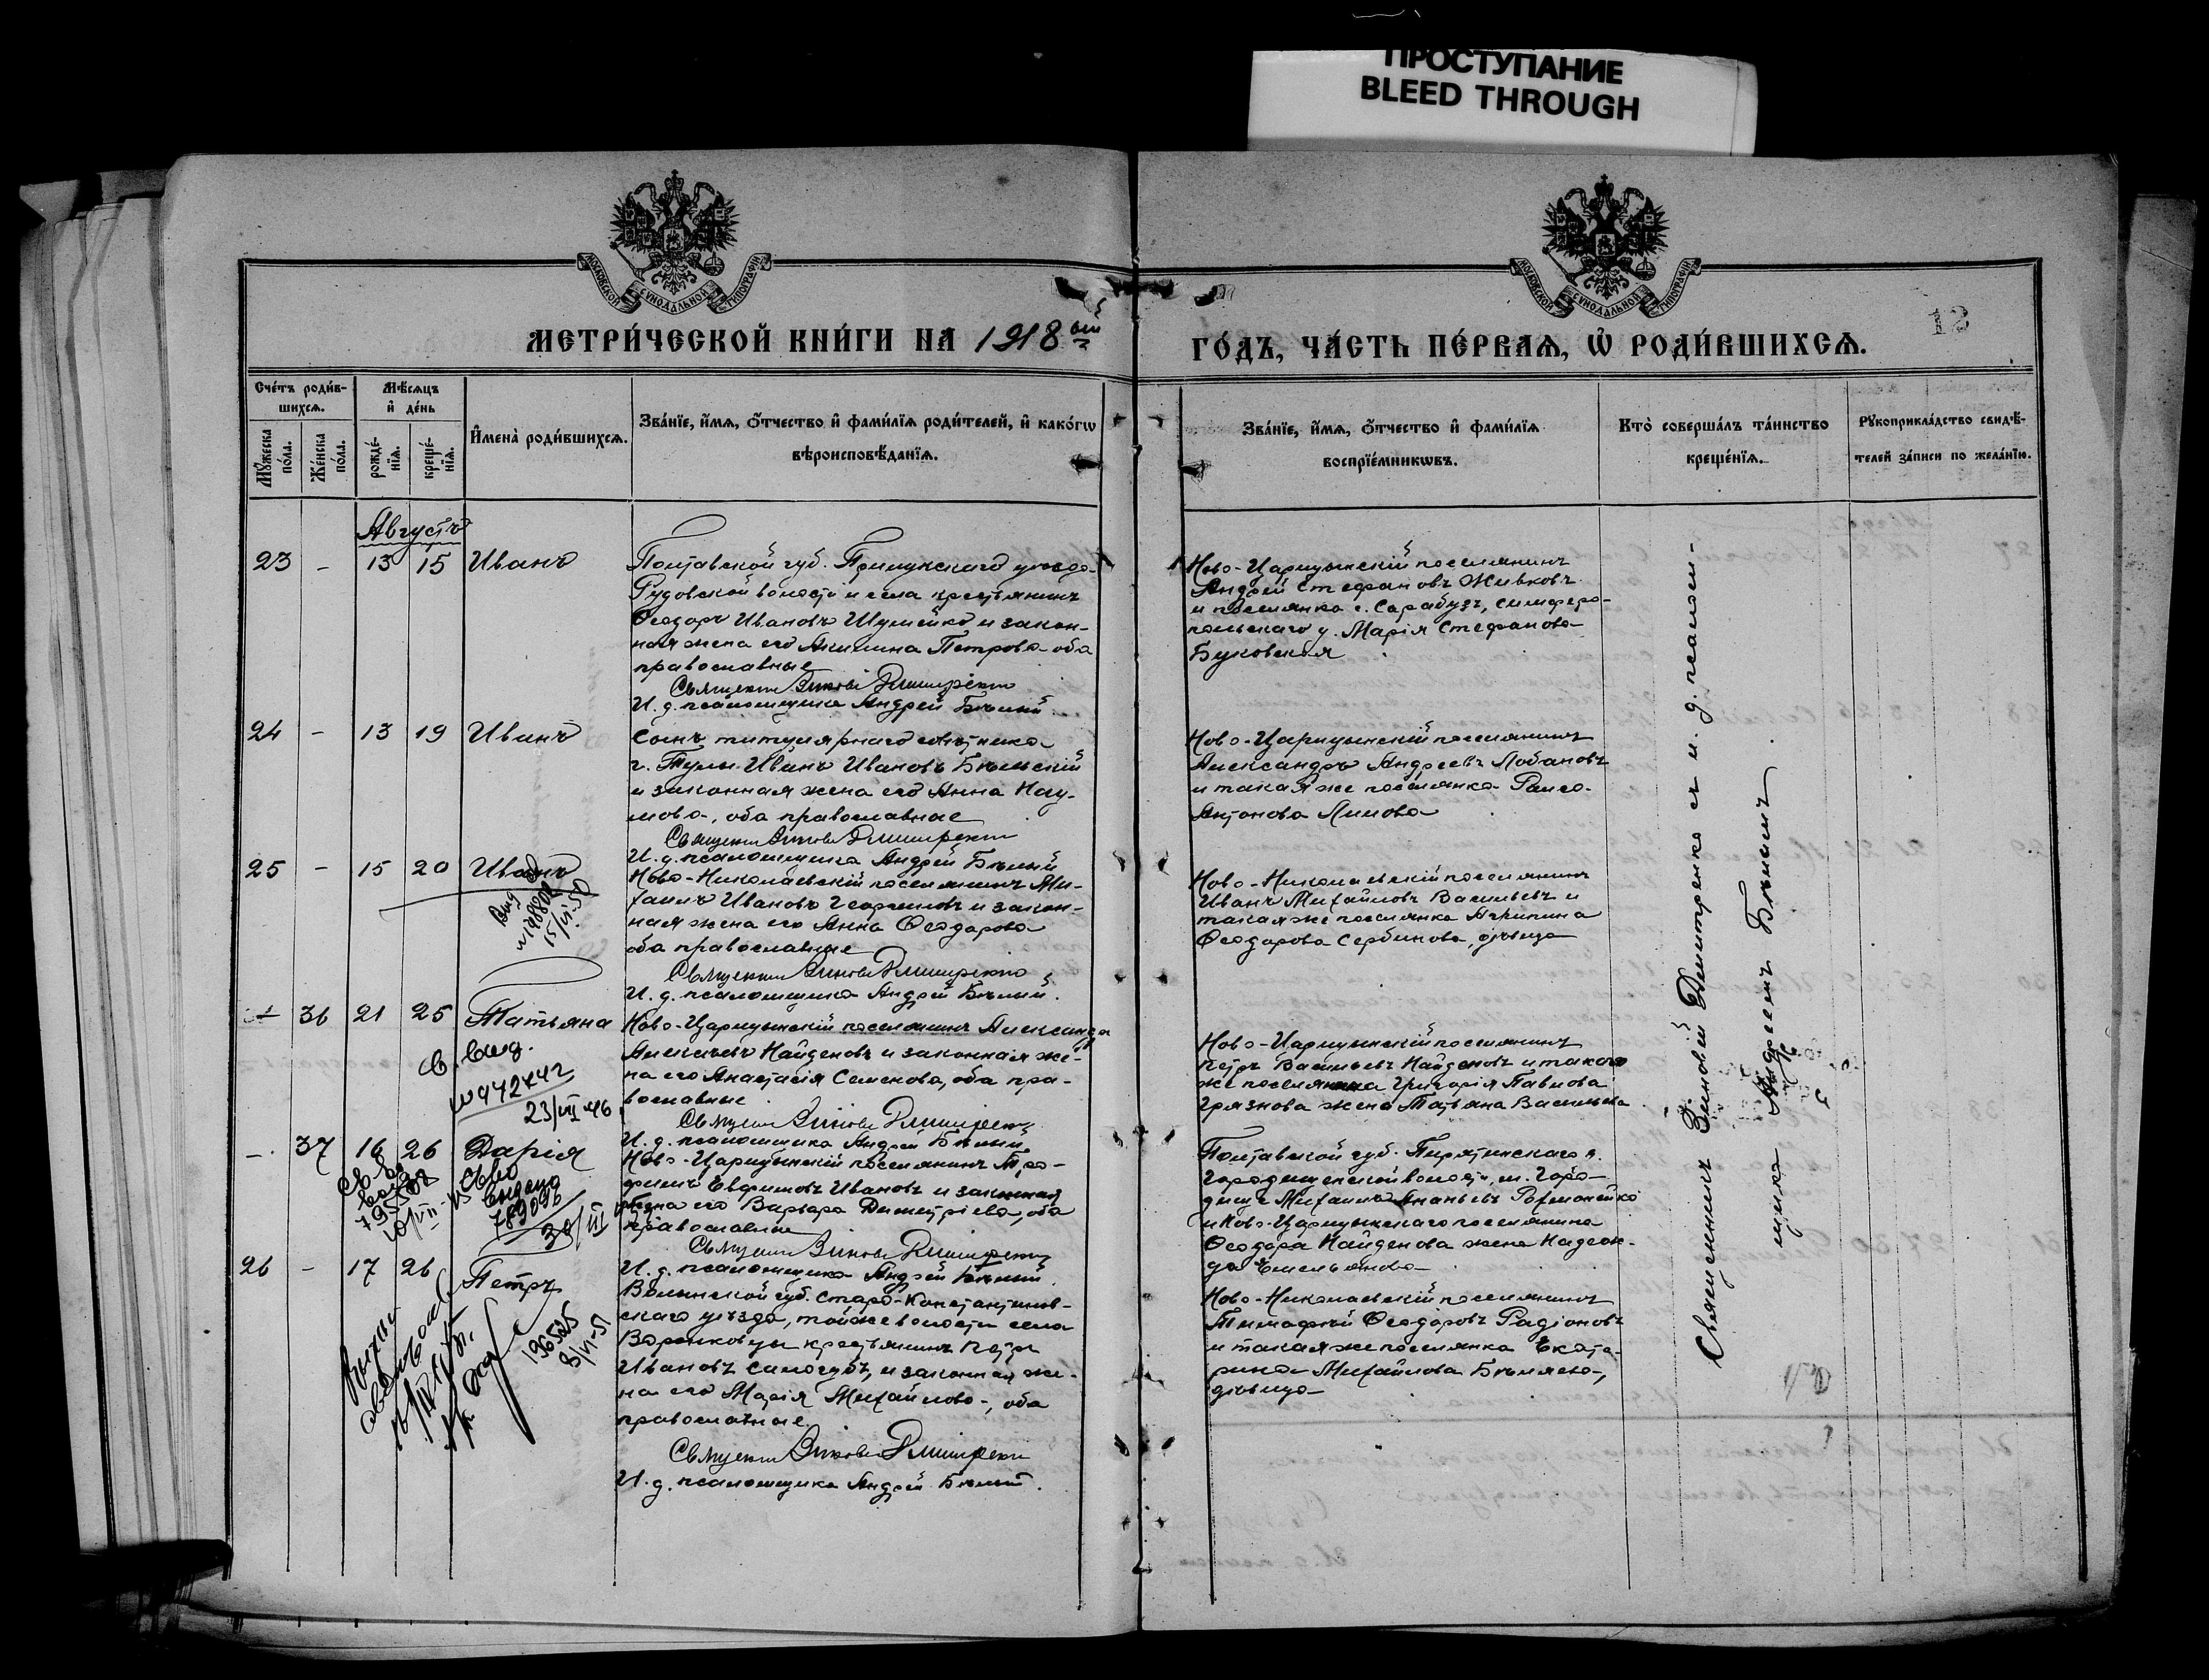 ПРОСТУПАНИЕ
BLEED THROUGH
МОСКОВСКОЙ СѴНОДАЛЬНОЙ ТИПОГРАФІИ
МОСКОВСКОЙ СѴНОДАЛЬНОЙ ТИПОГРАФІИ
МЕТРИ́ЧЕСКОЙ КНИ́ГИ НА 1918 ый
ГО́ДЪ, ЧА́СТЬ ПЕ́РВАѦ, Ѽ РОДИ́ВШИХСѦ.
12
Сче́тъ роди́в-
шихсѧ.
Мѣ́сѧцъ
и҆ де́нь
Мꙋ́жеска по́ла.
Же́нска по́ла.
рожде́-нїѧ.
креще́-нїѧ.
И҆мена̀ роди́вшихсѧ.
Зва́нїе, и҆́мѧ, ѻ҆́тчество и҆ фами́лїѧ роди́телей, и҆ како́гѡ
вѣроисповѣ́данїѧ.
Зва́нїе, и҆́мѧ, ѻ҆́тчество и҆ фами́лїѧ
воспрїе́мникѡвъ.
Кто̀ соверша́лъ та́инство
креще́нїѧ.
Рꙋкоприкла́дство свидѣ́-
телей за́писи по жела́нїю.
Августъ
23 - 13 15 Иванъ
Полтавской губ. Прилукскаго уѣзда
Рудовской волости и села крестьянинъ
Ѳеодоръ Ивановъ Шулейко и закон-
ная жена его Акилина Петрова оба
православные
Священникъ Зиновій Димитренко
И. д. псаломщика Андрей Бѣлый
Ново-Царицынскій поселянинъ
Андрей Стефановъ Живковъ
и поселянка с. Сарабузъ, симферо-
польскаго у. Марія Стефанова
Буковская
24 - 13 19 Иванъ
Сынъ титулярнаго совѣтника
г. Тулы Иванъ Ивановъ Бѣльскій
и законная жена его Анна Нау-
мова, оба православные
Священникъ Зиновій Димитренко
И. д. псаломщика Андрей Бѣлый
Ново-Царицынскій поселянинъ
Александръ Андреевъ Лобановъ
и такая же поселянка Раиса
Антонова Лимова
25 - 15 20 Иванъ
15/VI-50
Ново-Николаевскій поселянинъ Ми-
хаилъ Ивановъ Георгіевъ и закон-
ная жена его Анна Ѳеодорова
оба православные
Священникъ Зиновій Димитренко
И. д. псаломщика Андрей Бѣлый.
Ново-Николаевскій поселянинъ
Иванъ Михайловъ Васильевъ и
такая же поселянка Агрипина
Ѳеодорова Сербинова, дѣвица
- 36 21 25 Татьяна
С. выд.
23/VII 46
Ново-Царицынскій поселянинъ Александръ
Алексѣевъ Найденовъ и законная же-
на его Анастасія Семенова, оба пра-
вославные
Священникъ Зиновій Димитренко
И. д. псаломщика Андрей Бѣлый
Ново-Царицынскій поселянинъ
Петръ Васильевъ Найденовъ и такого
же поселянина Григорія Павлова
Грязнова жена Татьяна Васильева
- 37 16 26 Дарія
Ново-Царицынскій поселянинъ Тро-
фимъ Евфимовъ Ивановъ и законная
жена его Варвара Димитріева, оба
православные
Священникъ Зиновій Димитренко
И. д. псаломщика Андрей Бѣлый
Полтавской губ. Пирятинскаго у.
Городищенской волости, м. Горо-
дищъ Михаилъ Ананьевъ
и Ново-Царицынскаго поселянина
Ѳеодора Найденова жена Надеж-
да Емельянова
26 - 17 26 Петръ
196525
8/VI-51
Волынской губ. Старо-Константинов-
скаго уѣзда, той же волости села
Воронковцы крестьянинъ Петръ
Ивановъ Самогубъ, и законная же-
на его Марія Михайлова, оба
православные.
Священникъ Зиновій Димитренко
И. д. псаломщика Андрей Бѣлый.
Ново-Николаевскій поселянинъ
Тимофей Ѳеодоровъ Радіоновъ
и такая же поселянка Екате-
рина Михайлова Бѣляева,
дѣвица
Священникъ Зиновій Димитренко съ и. д. псалом-
щика Андреемъ Бѣлымъ.